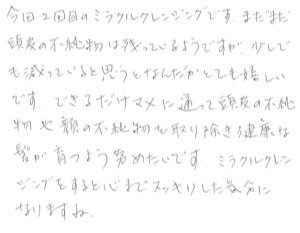 今回2回目のミラクルクレンジングです。まだまだ
頭皮の不純物は残っているようですが、少しで
も減っていると思うとなんだかとても嬉しい
です。できるだけマメに通って頭皮の不純
物や顔の不純物を取り除き健康な
髪が育つよう努めたいです。ミラクルクレン
ジングをすると心までスッキリした気分に
なりますね。